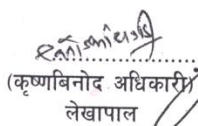 (कृष्णबिनोद अधिकारी)
लेखापाल